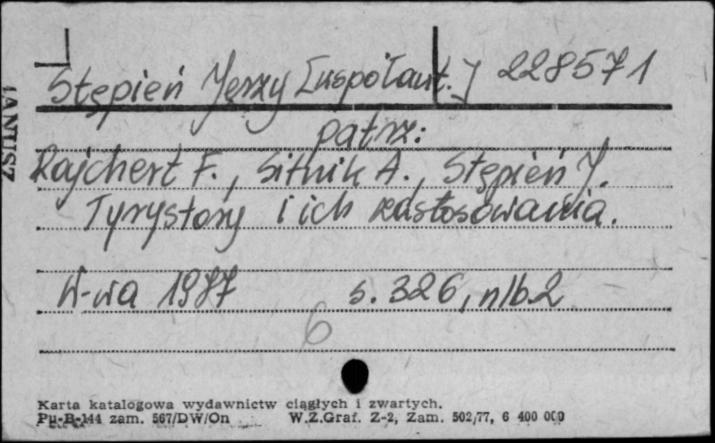 Stępień Jerzy [współaut.] 228571
patrz:
Rajchert F., Sitnik A., Stępień J.
Tyrystory i ich zastosowania.
W-wa 1987 s. 326, nlb. 2
6
Karta katalogowa wydawnictw ciągłych i zwartych.
Pu-B-144 zam. 567/DW/On W.Z.Graf. Z-2, Zam. 502/77, 6 400 000
JANTUSZ